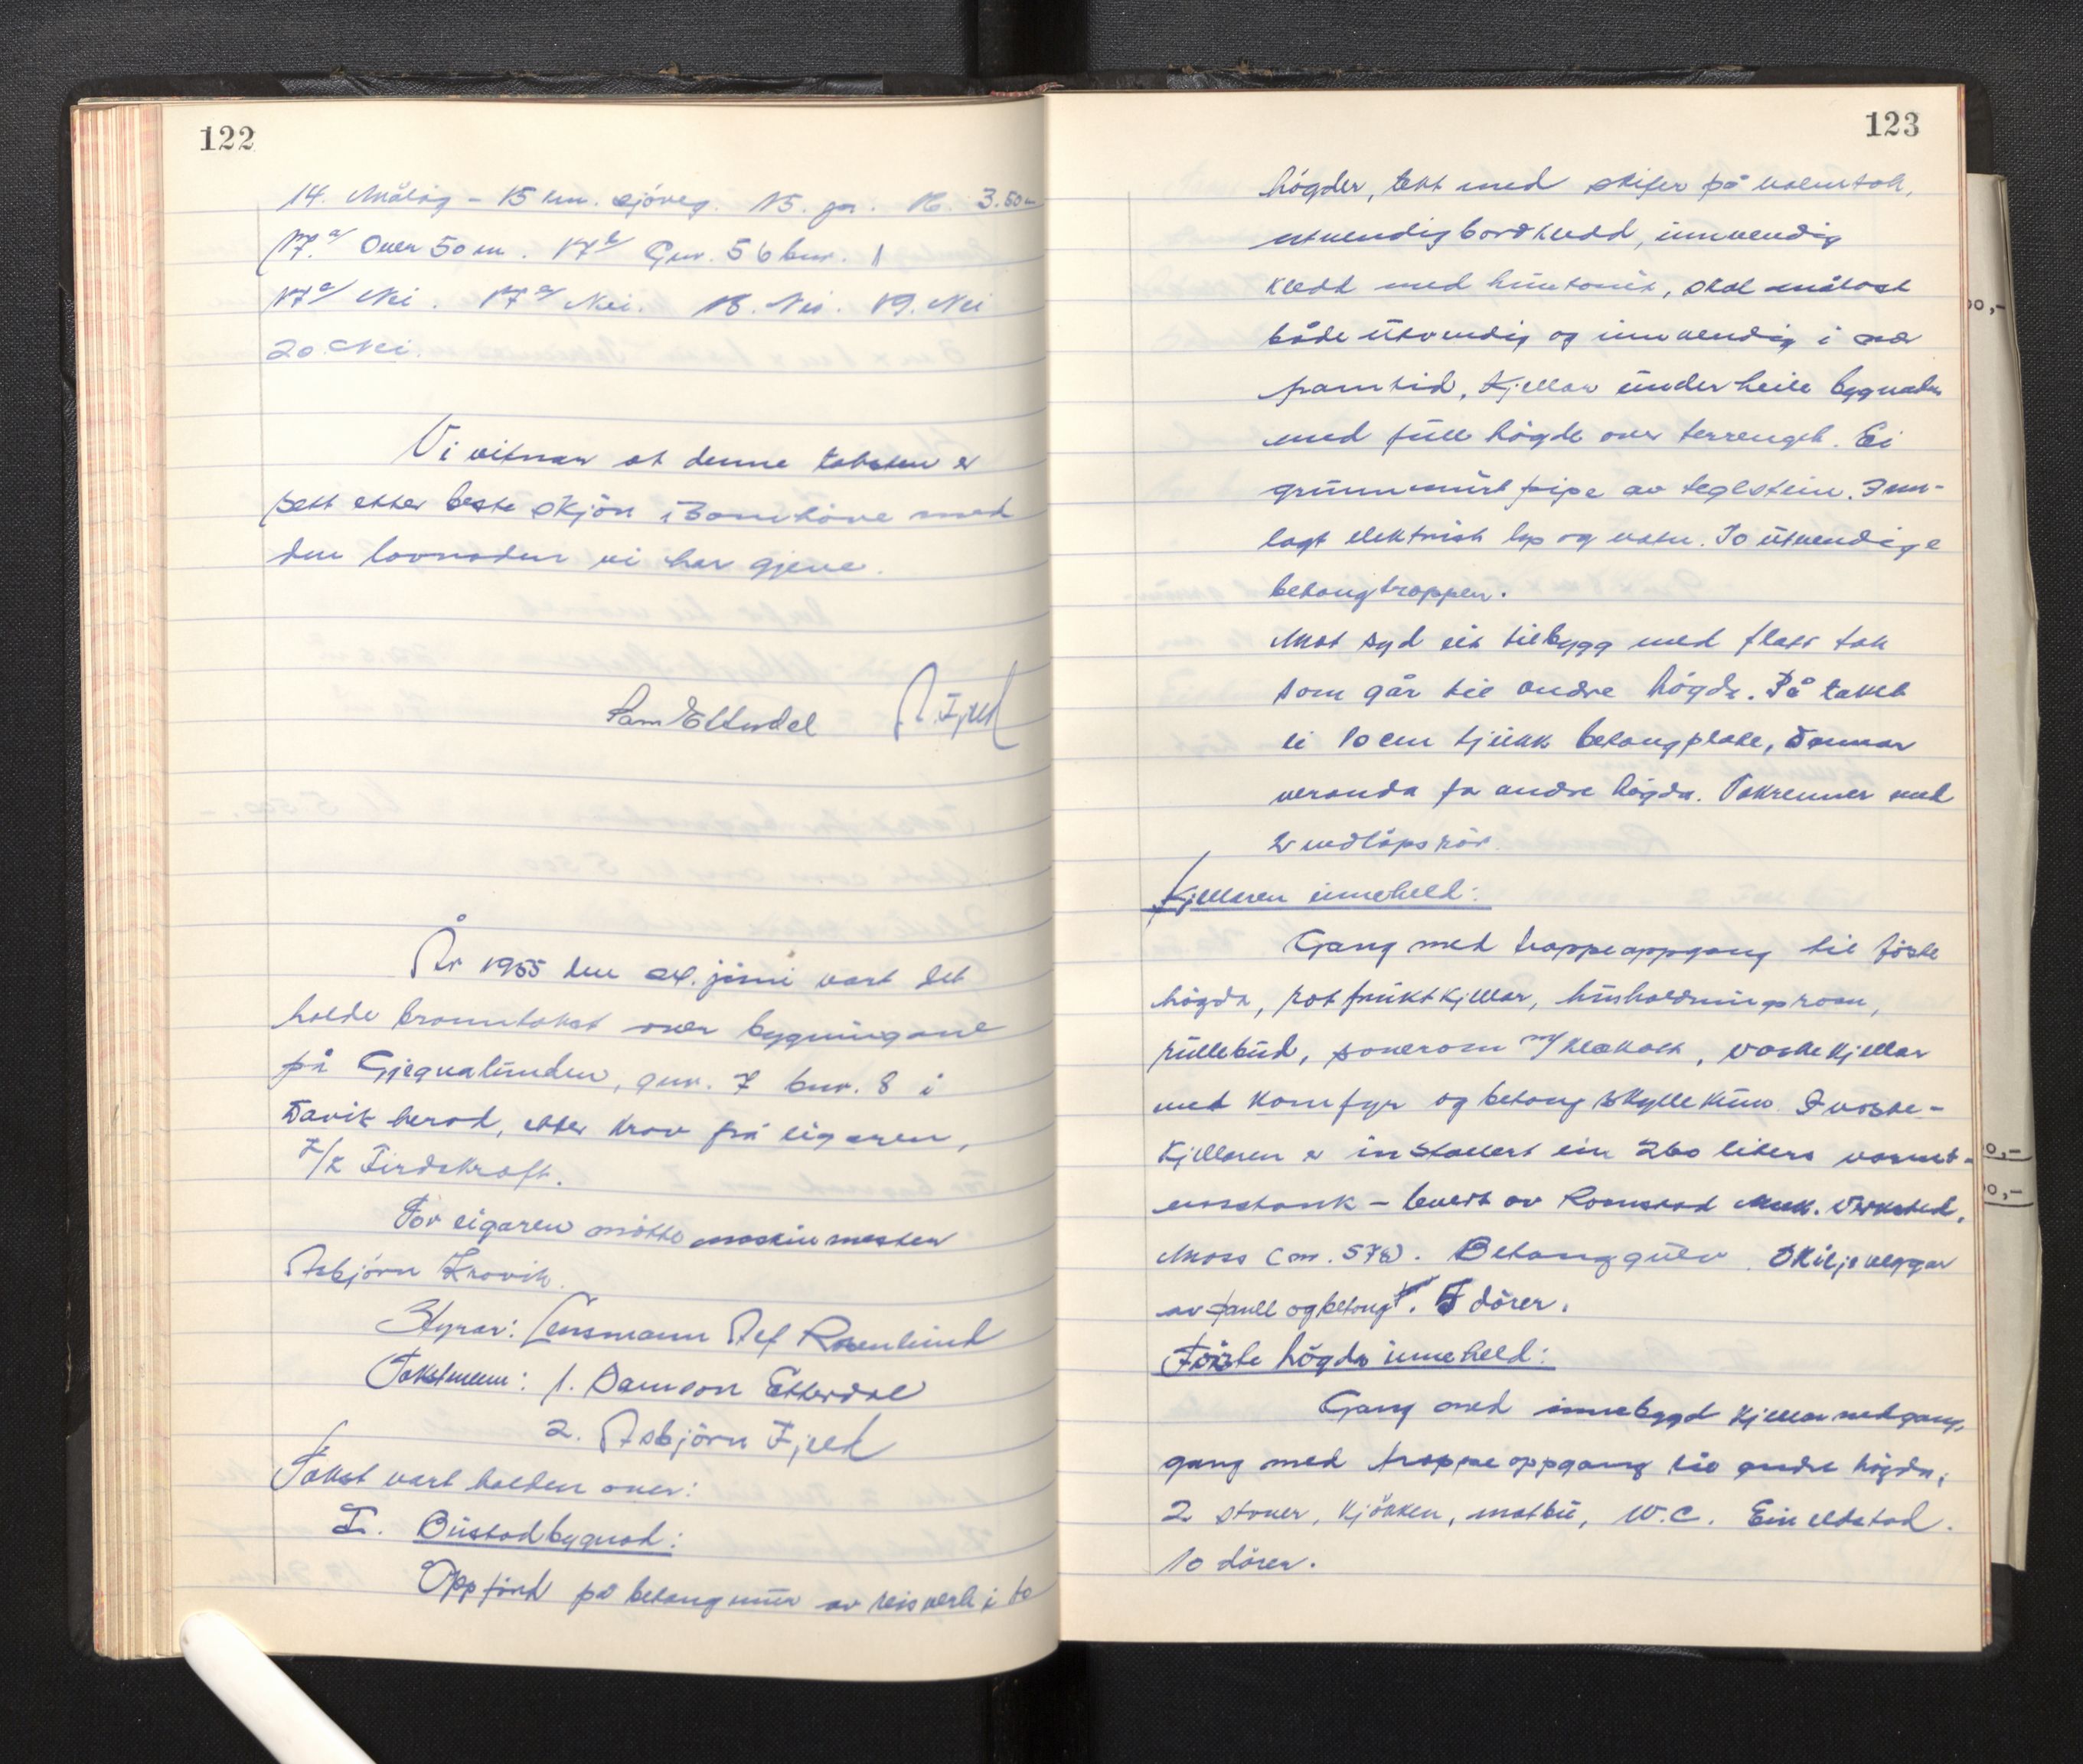 122
14. Måløy - 15 km. sjöveg. 15. ja. 16. 3.50 m
17. a/ Over 50 m. 17 b/ Gnr. 56 bnr. 1
17 c/ Nei. 17 d/ Nei. 18. Nei. 19. Nei
20. Nei.
Vi vitnar at denne taksten er
sett etter beste skjön i samhöve med
den lovnaden vi har gjeve.
Sam Ettendal A. Fjell
År 1955 den 24. juni vart det
halde branntakst over bygningane
på Gjegnalunden, gnr. 7 bnr. 8 i
Davik herad, etter krav frå eigaren,
L/L Firdakraft.
For eigaren mötte maskinmester
Asbjörn
Styrar: Lensmann Alf Rosenlund
Takstmenn: 1. Samson Etterdal
2. Asbjörn Fjell
Takst vart halden over:
I. Bustadbygnad:
Oppförd på betongmur av reisverk i to
123
högder, tekt med skifer på valmtak,
utvendig bordkledd, innvendig
kledt med huntonit, skal målast
både utvendig og innvendig i nær
framtid, Kjellar under heile bygnaden
med full högde over terrenget. Ei
grunnmurt pipe av teglstein. Inn-
lagt elektrisk lys og vatn. To utvendige
betongtrapper.
Mot syd eit tilbygg med flatt tak
som går til andre högda. På taket
ei 10 cm tjukk betongplate, dannar
veranda for andre högda. Takrenner med
2 nedlöpsrör.
Kjellaren inneheld:
Gang med trappeoppgang til föste
högda, rotfruktkjellar, husholdningsrom,
rullebud, soverom m/klækott, vaskekjellar
med komfyr og betong skyllekum. I vaske-
kjellaren er installert ein 260 liters varmt-
vasstank - levert av Roenstad Mek. Verksted,
Moss (nr. 578). Betonggulv. Skiljeveggar
av panel og betong. 5 dörer.
Föste högda inneheld:
Gang med innebygd kjellarnedgang,
gang med trappeoppgang til andre högda,
2 stover, kjökken, matbu, W.C. Ein eldstad.
10 dörer.
00,-
0,-
00,-